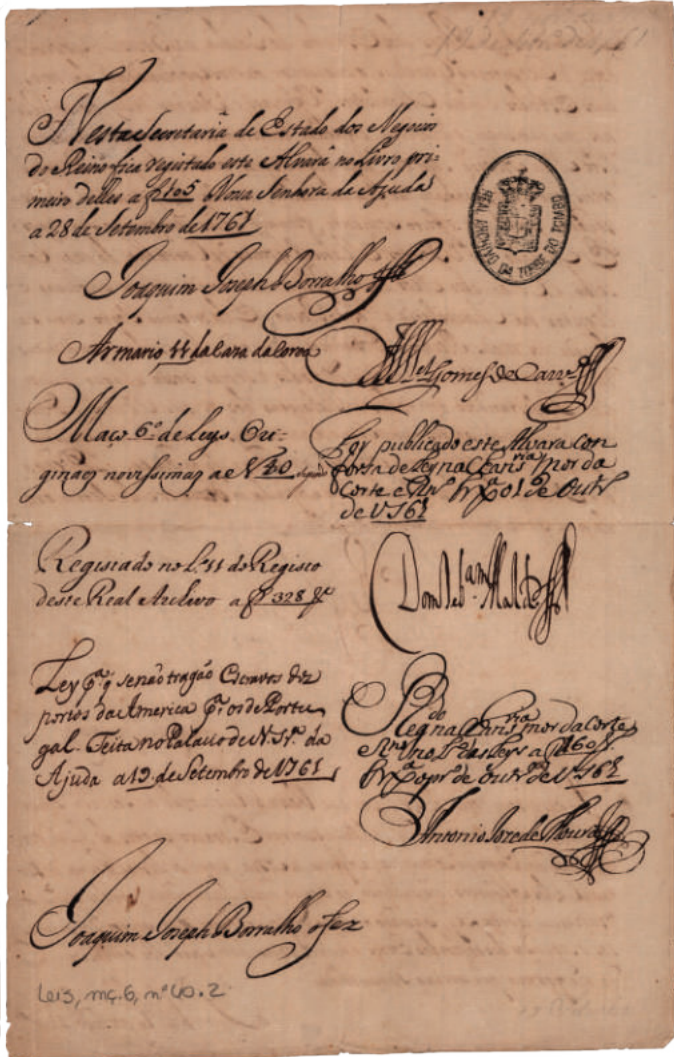 19 de Setr.º de 1761
Nesta Secretaria de Estado dos Negocios
do Reino fica registado este Alvará no Livro pri-
meiro delles a f 105 Nossa Senhora da Ajuda
a 28 de Setembro de 1761
Joaquim Joseph Borralho
REAL ARCHIVO DA TORRE DO TOMBO
Armario 11 da Caza da Coroa
Gomes de Carv.º
Maço 6º de Leys Ori-
ginaes novissimas a e Nº 40
Foy publicado este Alvara
na Chans.ria mor da
Corte e Rn.º 1 de Out.
de 1761
Registado no L.º 11 do Registo
deste Real Archivo a f 328
Dom Seb.am Mald.
Ley p.ª q senão tragão Escravos dos
portos da America p.ª os de Portu
gal. Feita no Palacio de N. Sr.ª da
Ajuda a 19 de Setembro de 1761
R.do
na Chans.ria mor da Corte
e Rn.º no L.º das Leys a f 160
de Out.º de 1761
Antonio Joze de Moura
Joaquim Joseph Borralho o fez
Leis, mç. 6, nº 40.2